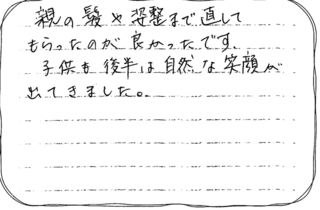 親の髪や調整まで直して
もらったのが良かったです。
子供も後半は自然な笑顔が
出てきました。